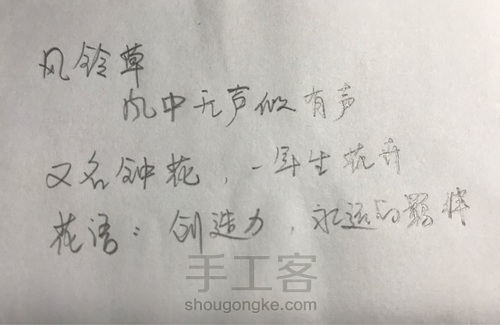 风铃草
风中无声似有声
又名钟花，一年生花卉
花语：创造力，永远的羁绊
手工客
shougongke.com